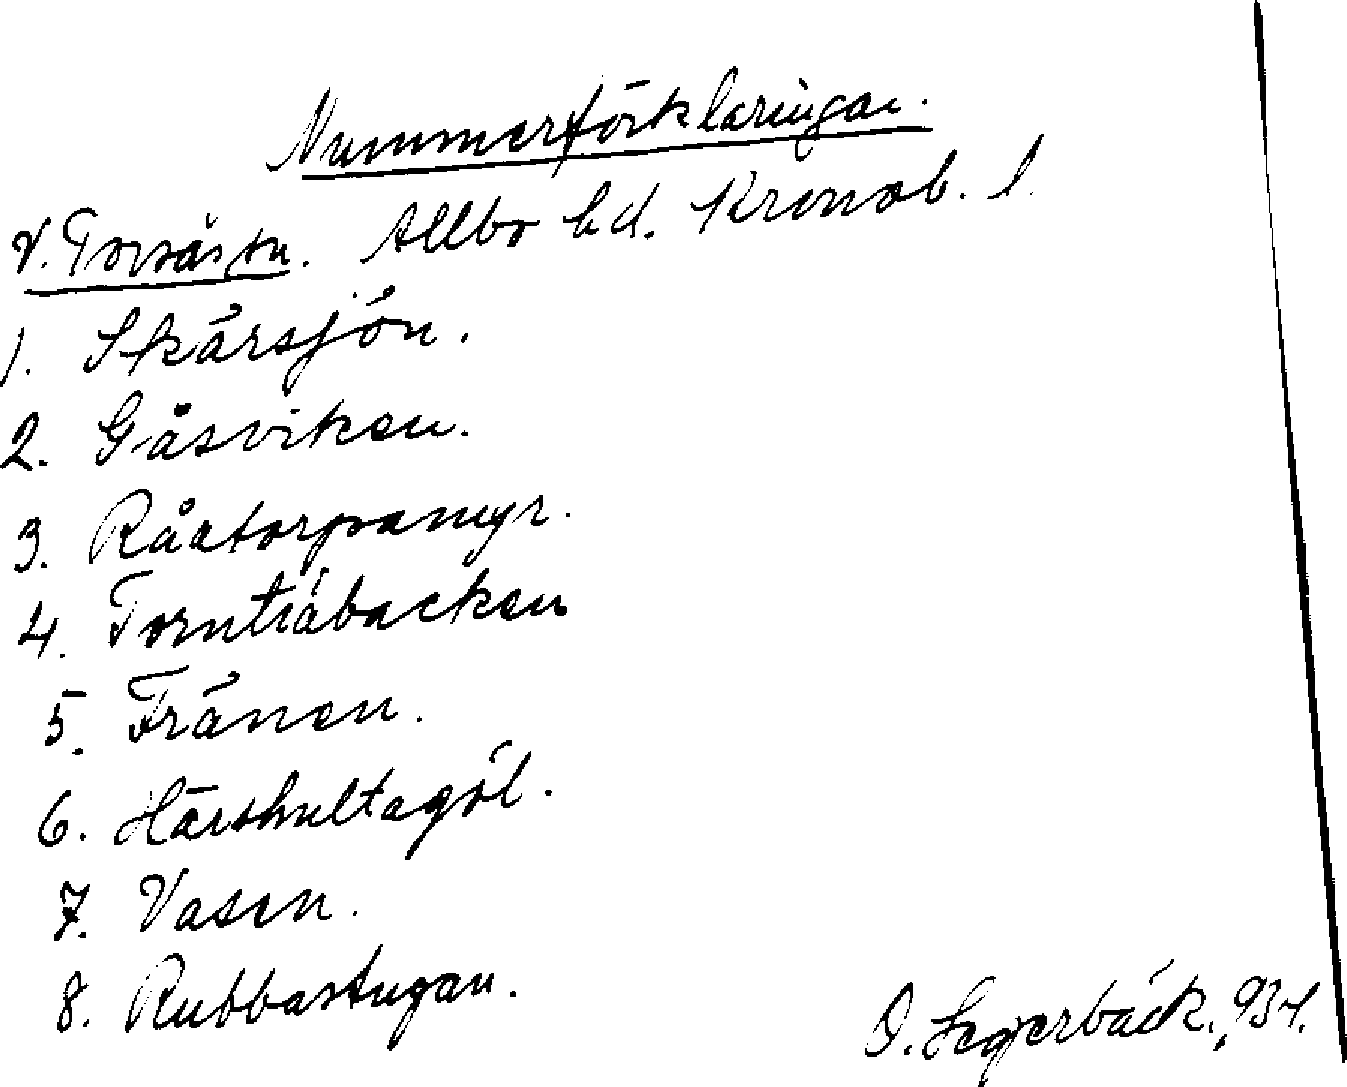 Nummerförklaringar.
V. Torsås sn. Allbo hd. Kronob. l.
1. Skärsjön.
2. Gåsviken.
3. Råatorpamyr.
4. Tornträbacken
5. Fränen.
6. Härshultagöl.
7. Vasen.
8. Rubbastugan.
O. Segerbäck, 934.